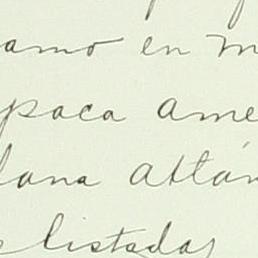 amo en m
poca ame
lana atlán
listadas